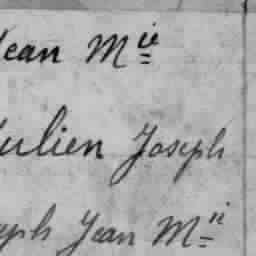 Jean M^ie
Julien Joseph
eph Jean M^ii